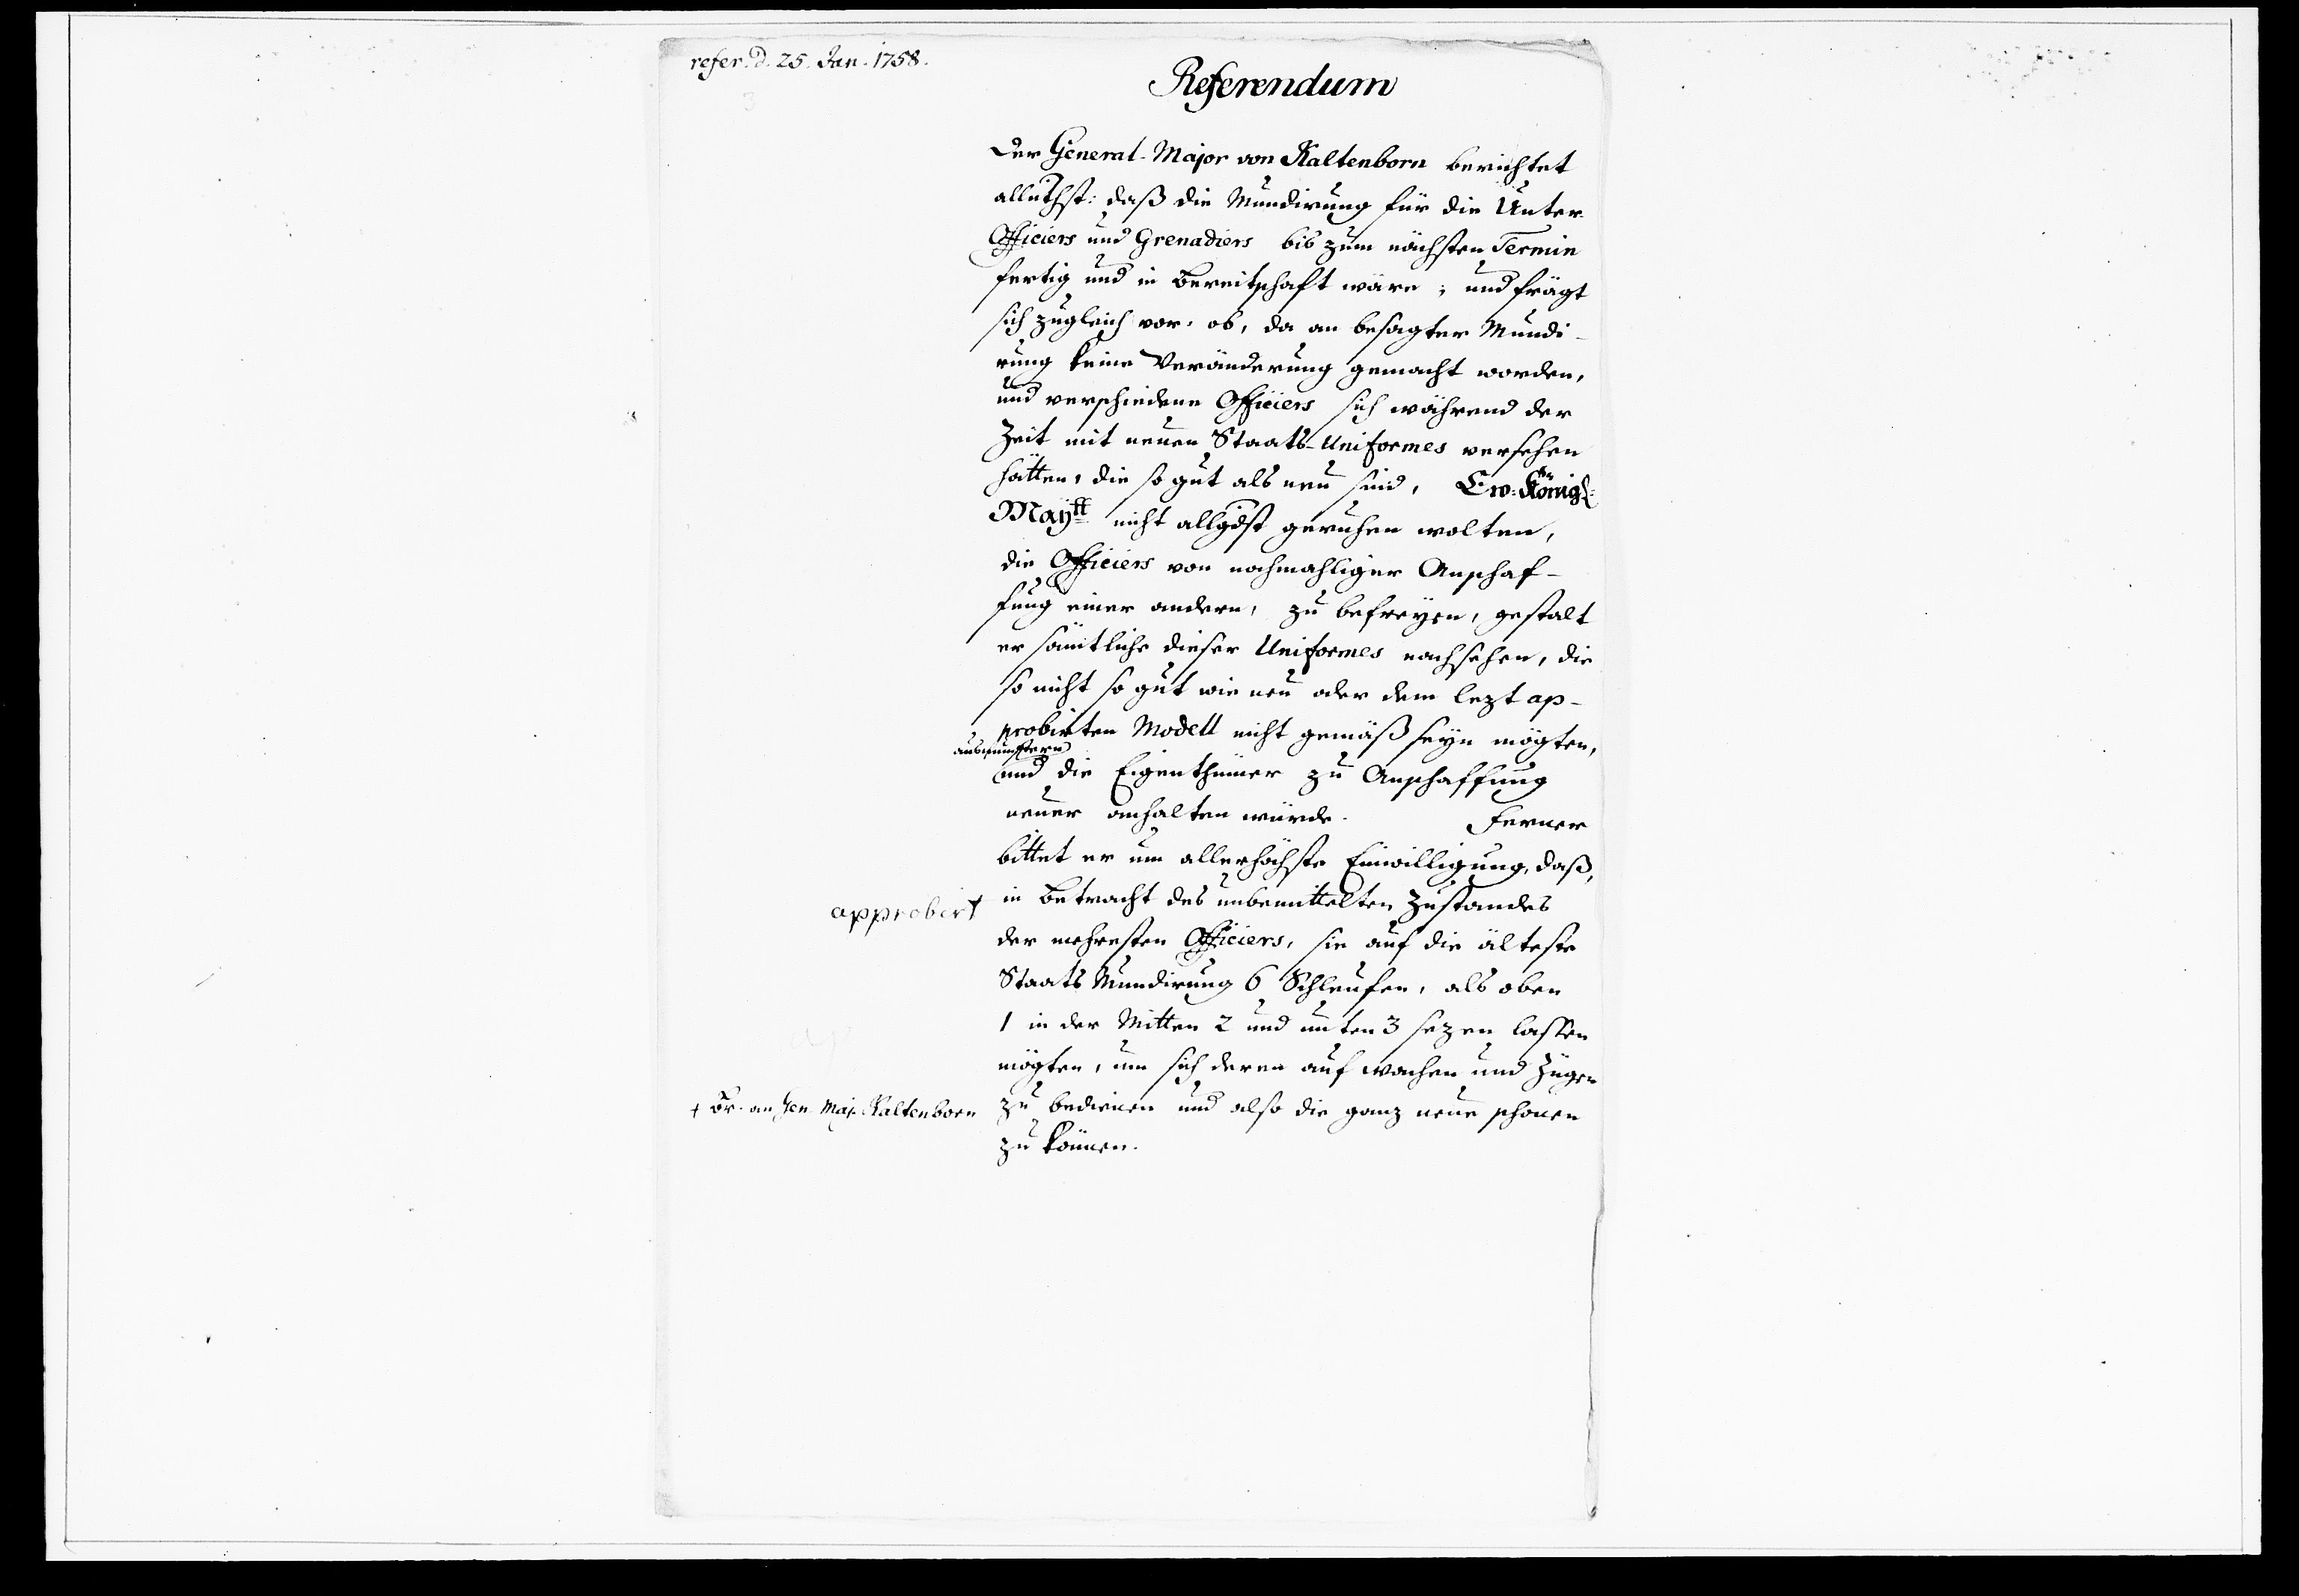 refer. d. 25. Jan. 1758.
Referendum
Der General-Major von Kaltenborn berichtet
alluthst: daß die Mundirung für die Unter
Officiers und Grenadiers bis zum nächsten Termin
fertig und in Bereitschaft wäre; und frägt
sich zugleich vor, ob, da an besagter Mundi-
rung keine Veränderung gemacht worden,
und verschiedene Officiers sich während der
Zeit mit neuen Staats-Uniformes versehen
hätten, die so gut als neu sind, Ew. Königl:
Maytt nicht allgdst geruhen wolten,
die Officiers von nochmahliger Anschaf-
fung einer andern, zu befreyen, gestalt
er sämtliche dieser Uniformes nachsehen, die
so nicht so gut wie neu oder dem lezt ap-
probirten Modell nicht gemäß seyn mögten,
ausmunstern
und die Eigenthümer zu Anschaffung
neuer anhalten würde. Ferner
bittet er um allerhöchste Einwilligung, daß,
approbirt
in Betracht des unbemittelten Zustandes
der mehresten Officiers, sie auf die älteste
Staats Mundirung 6 Schleufen, als oben
1 in der Mitten 2 und unten 3 sezen lassen
mögten, um sich deren auf Wachen und Zügen
+ Or. an Gen. Maj. Kaltenborn
zu bedienen und also die ganz neue schonen
zu können.